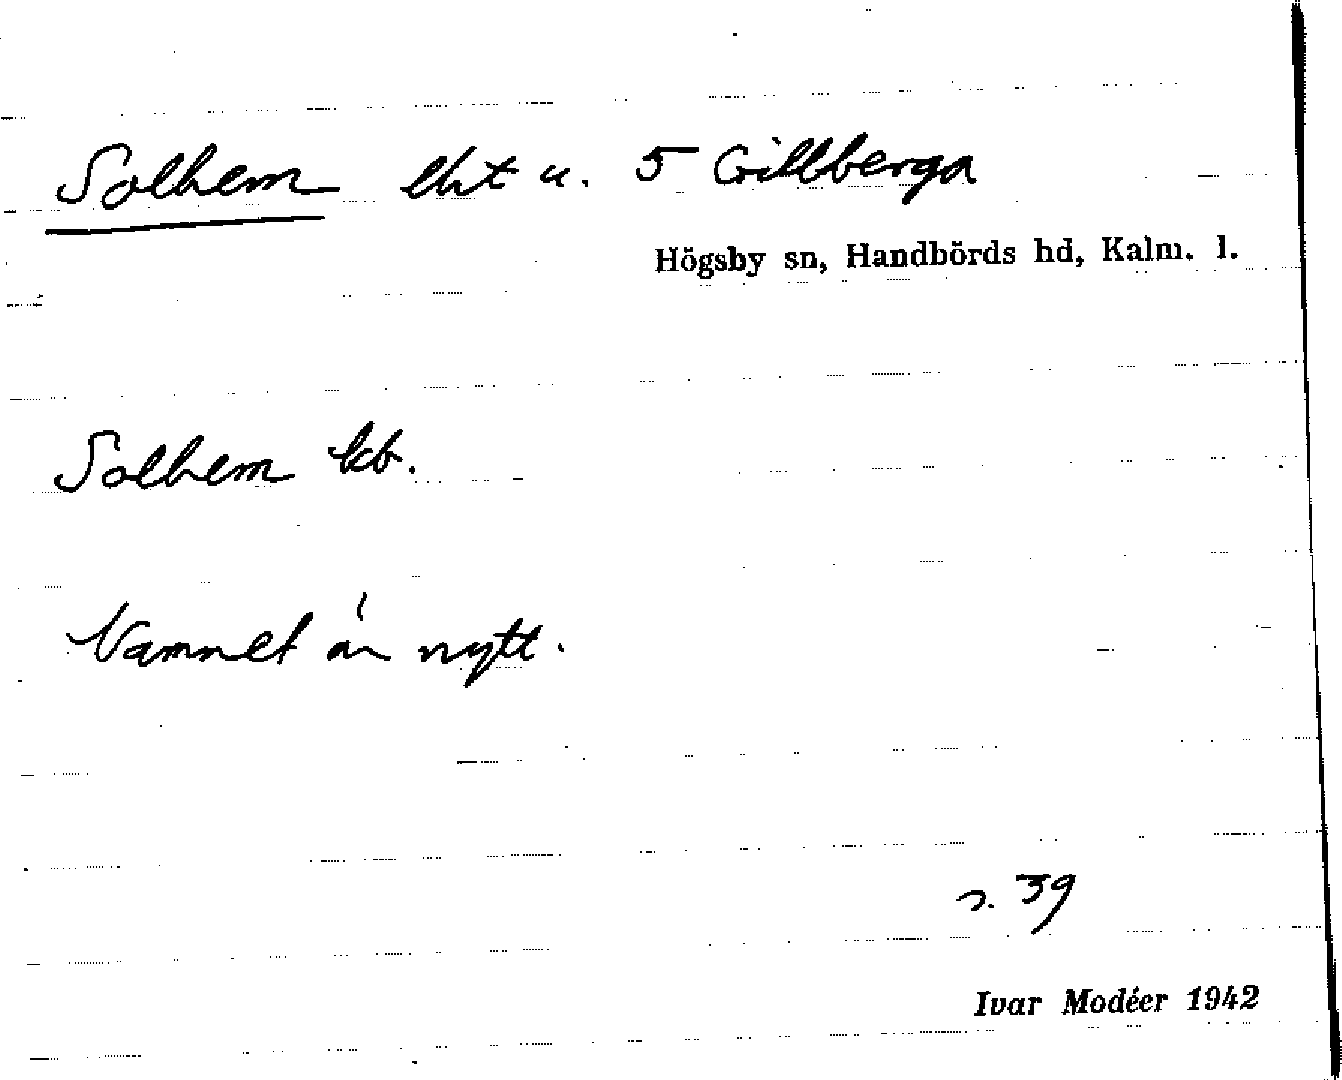 Solhem lht u. 5 Gillberga
Högsby sn, Handbörds hd, Kalm. l.
Solhem kb.
Namnet är nytt.
s. 39
Ivar Modéer 1942